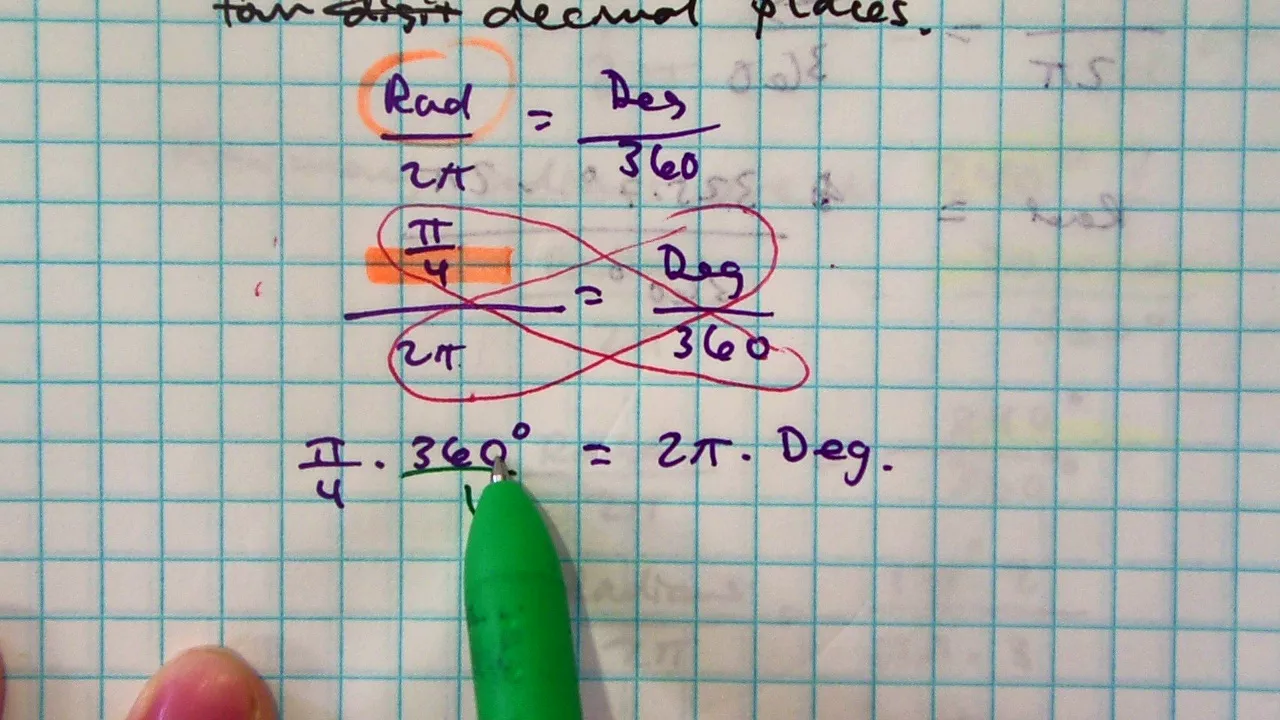 decimal places.
Rad/2π = Deg/360
(π/4)/2π = Deg/360
π/4 · 360° = 2π · Deg.